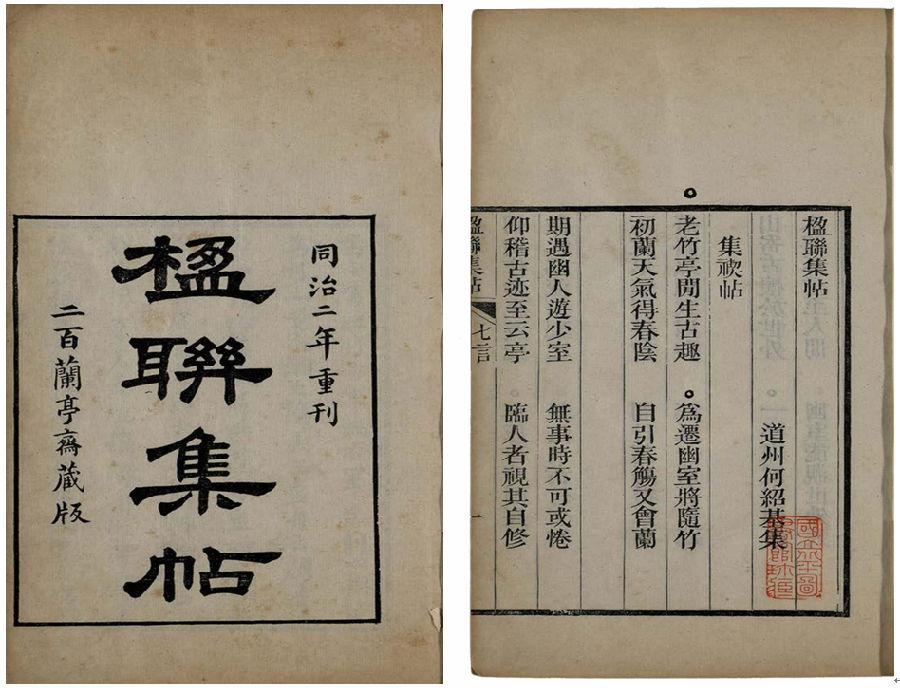 同治二年重刊
楹聯集帖
二百蘭亭齋藏版
楹聯集帖
道州何紹基集
集禊帖
老竹亭閒生古趣 爲遷幽室將隨竹
初蘭天氣得春陰 自引春觴又會蘭
期遇幽人遊少室 無事時不可或惓
仰稽古迹至云亭 臨人者視其自修
楹聯集帖 七言 一